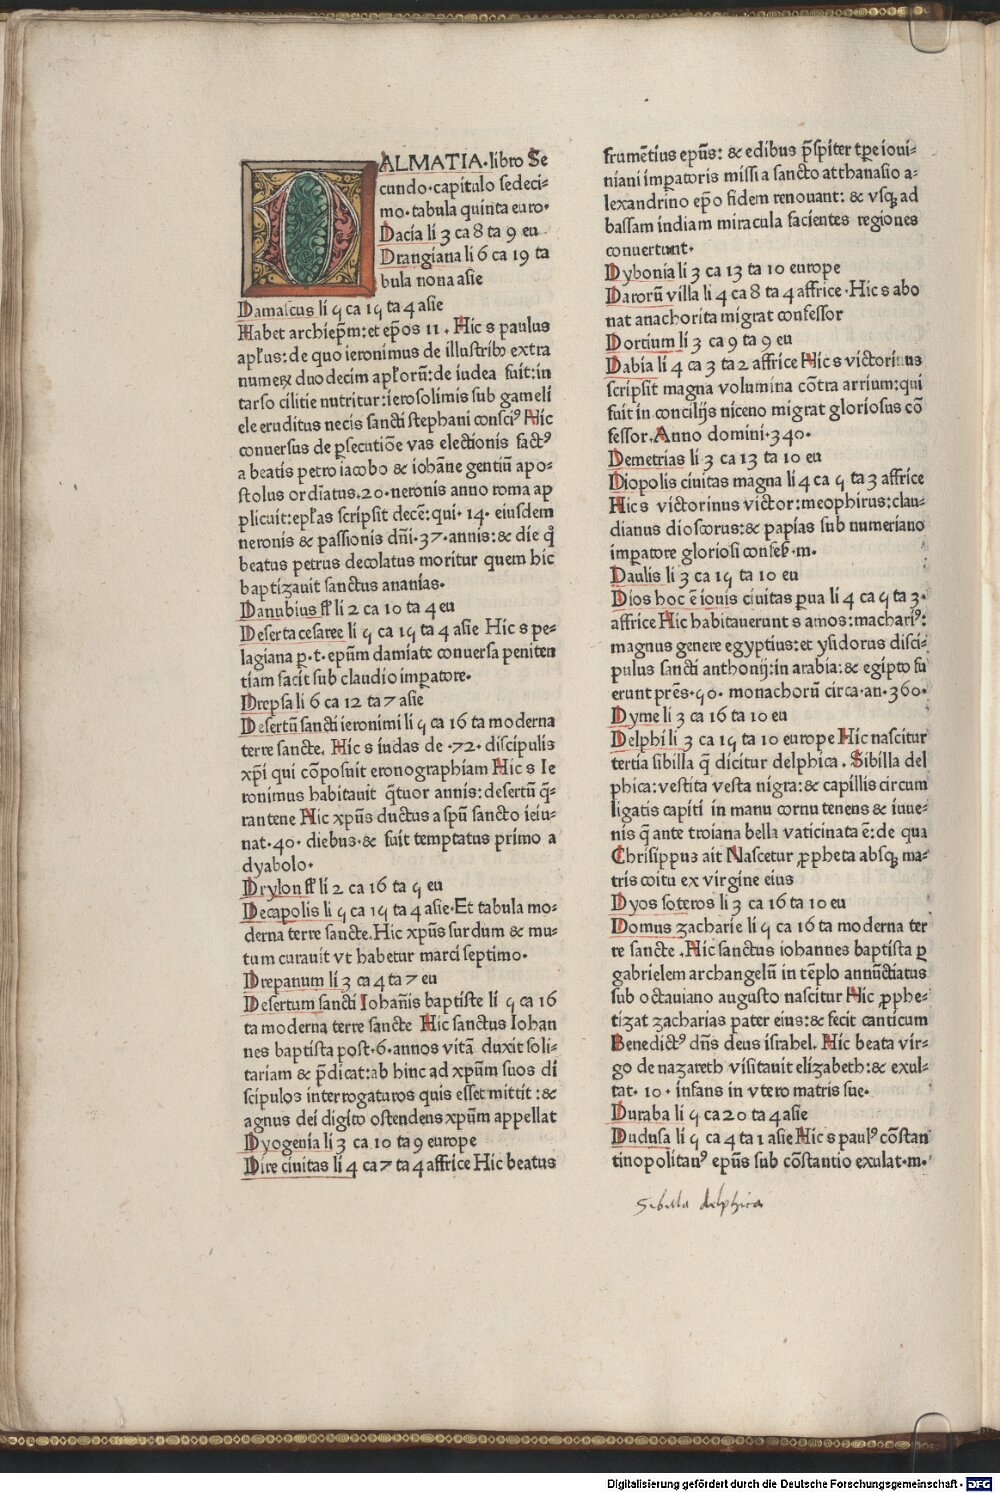 DALMATIA·libro Se
cundo·capitulo sedeci-
mo·tabula quinta euro·
Dacia li 3 ca 8 ta 9 eu
Drangiana li 6 ca 19 ta
bula nona asie
Damascus li 5 ca 15 ta 4 asie
Habet archiep̄m:et ep̄os 11. Hic s paulus
apl̄us:de quo ieronimus de illustribꝯ extra
numeꝝ duodecim apl̄orū:de iudea fuit:in
tarso cilitie nutritur:ierosolimis sub gameli
ele eruditus necis sancti stephani consciꝰ Hic
conuersus de ꝑsecutiōe vas electionis factꝰ
a beatis petro iacobo & iohāne gentiū apo-
stolus ordiatus.20·neronis anno roma ap
plicuit:epl̄as scripsit decē:qui·14·eiusdem
neronis & passionis dn̄i·37·annis:& die q̊
beatus petrus decolatus moritur quem hic
baptizauit sanctus ananias·
Danubius fl̄ li 2 ca 10 ta 4 eu
Deserta cesaree li 5 ca 15 ta 4 asie Hic s pe-
lagiana p·t·ep̄um damiate conuersa peniten
tiam facit sub claudio imꝑatore·
Drepsa li 6 ca 12 ta 7 asie
Desertū sancti ieronimi li 5 ca 16 ta moderna
terre sancte. Hic s iudas de ·72· discipulis
xp̄i qui cōposuit cronographiam Hic s Ie
ronimus habitauit q̄tuor annis:desertū q̄-
rantene Hic xp̄us ductus a spū sancto ieiu-
nat·40· diebus·& fuit temptatus primo a
dyabolo·
Drylon fl̄ li 2 ca 16 ta 5 eu
Decapolis li 5 ca 15 ta 4 asie·Et tabula mo-
derna terre sancte.Hic xp̄us surdum & mu-
tum curauit vt habetur marci septimo·
Drepanum li 3 ca 4 ta 7 eu
Desertum sancti Iohan̄is baptiste li 5 ca 16
ta moderna terre sancte Hic sanctus Iohan
nes baptista post·6·annos vitā duxit soli-
tariam & p̄dicat:ab hinc ad xp̄um suos di
scipulos interrogaturos quis esset mittit:&
agnus dei digito ostendens xp̄um appellat
Dyogenia li 3 ca 10 ta 9 europe
Dire ciuitas li 4 ca 7 ta 4 affrice Hic beatus
frumētius ep̄us: & edibus p̄sƀiter tp̄e ioui-
niani imꝑatoris missi a sancto atthanasio a-
lexandrino ep̄o fidem renouant: & vsqꝫ ad
bassam indiam miracula facientes regiones
conuertunt·
Dybonia li 3 ca 13 ta 10 europe
Darorū villa li 4 ca 8 ta 4 affrice·Hic s abo
nat anachorita migrat confessor
Dortium li 3 ca 9 ta 9 eu
Dabia li 4 ca 3 ta 2 affrice Hic s victorinus
scripsit magna volumina cōtra arrium:qui
fuit in concilijs niceno migrat gloriosus cō
fessor.Anno domini·340·
Demetrias li 3 ca 13 ta 10 eu
Diopolis ciuitas magna li 4 ca 5 ta 3 affrice
Hic s victorinus victor:meophirus:clau-
dianus dioscorus:& papias sub numeriano
imꝑatore gloriosi confess̄·m·
Daulis li 3 ca 15 ta 10 eu
Dios hoc ē iouis ciuitas ꝑua li 4 ca 5 ta 3·
affrice Hic habitauerunt s amos:machariꝰ:
magnus genere egyptius:et ysidorus disci-
pulus sancti anthonij:in arabia:& egipto fu
erunt prēs·50· monachorū circa·an·360·
Dyme li 3 ca 16 ta 10 eu
Delphi li 3 ca 15 ta 10 europe Hic nascitur
tertia sibilla q̄ dicitur delphica. Sibilla del
phica:vestita vesta nigra:& capillis circum
ligatis capiti in manu cornu tenens & iuue-
nis q̄ ante troiana bella vaticinata ē:de qua
Chrisippus ait Nascetur ꝓpheta absqꝫ ma-
tris coitu ex virgine eius
Dyos soteros li 3 ca 16 ta 10 eu
Domus zacharie li 5 ca 16 ta moderna ter
re sancte .Hic sanctus iohannes baptista ꝑ
gabrielem archangelū in tēplo annūctiatus
sub octauiano augusto nascitur Hic ꝓphe-
tizat zacharias pater eius:& fecit canticum
Benedictꝰ dn̄s deus israhel. Hic beata vir-
go de nazareth visitauit elizabeth:& exul-
tat· 10 · infans in vtero matris sue·
Duraba li 5 ca 20 ta 4 asie
Dudusa li 5 ca 4 ta 1 asie Hic s paulꝰ cōstan
tinopolitanꝰ ep̄us sub cōstantio exulat·m·
Sibilla delphica
Digitalisierung gefördert durch die Deutsche Forschungsgemeinschaft - DFG